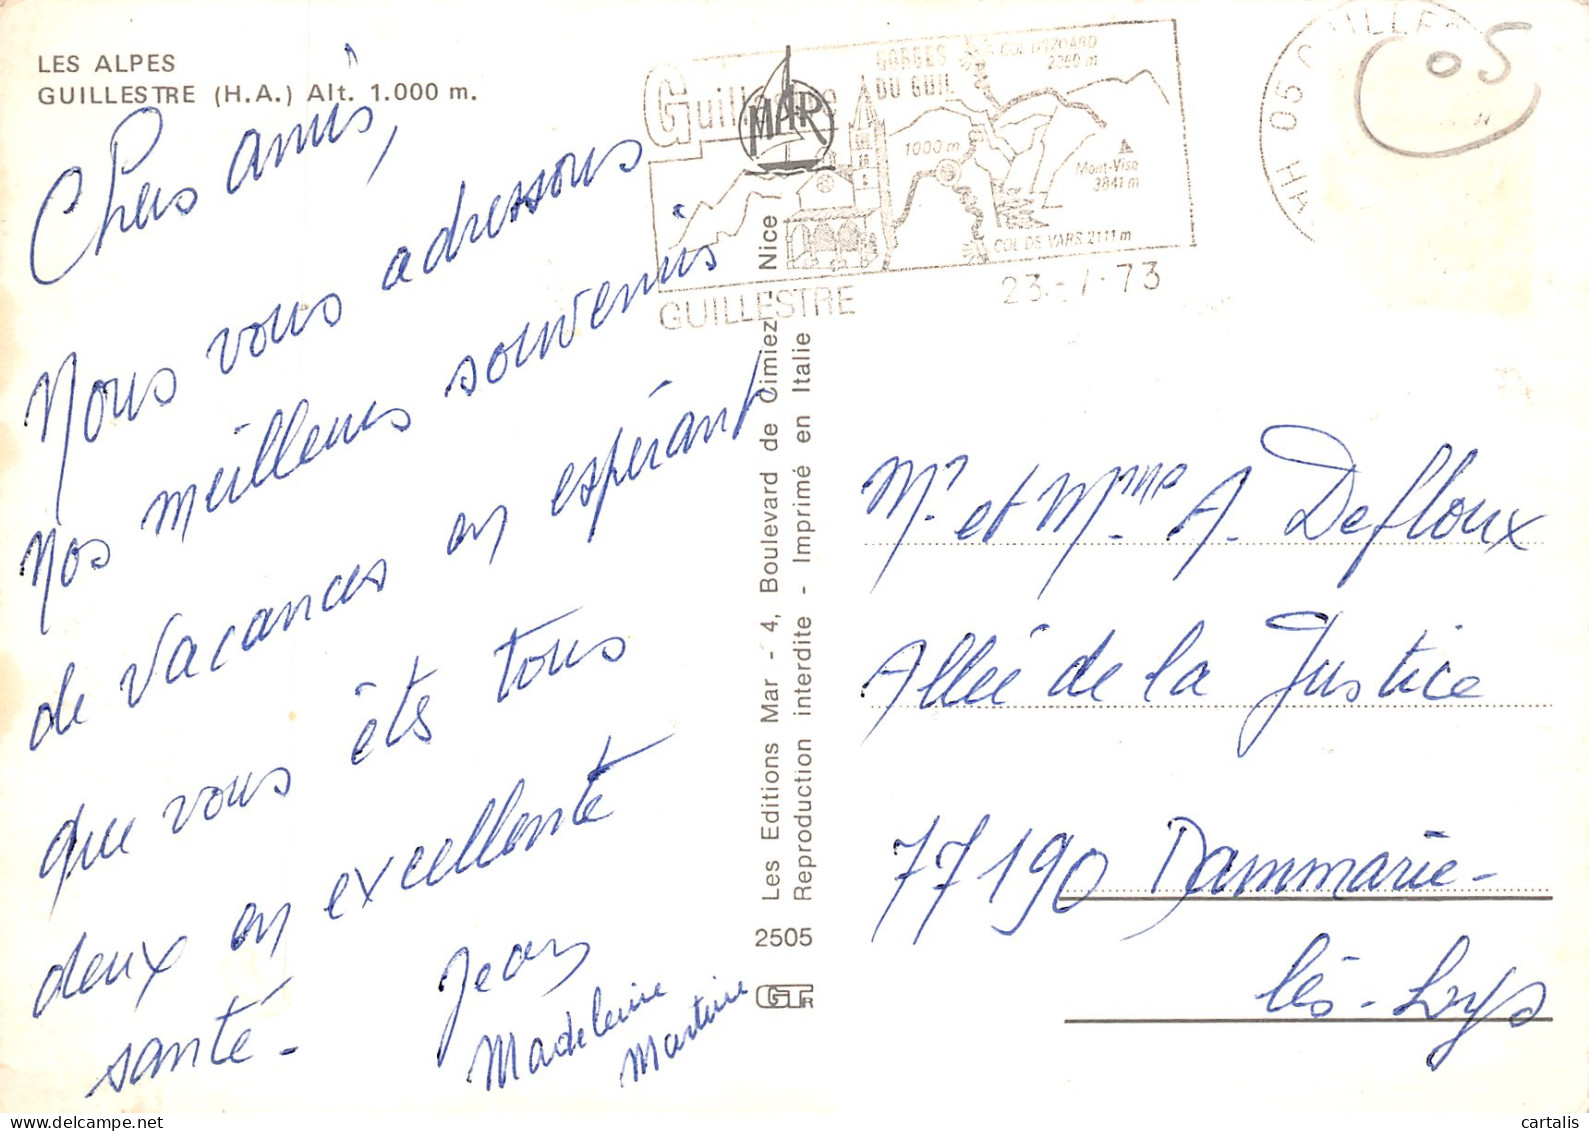 LES ALPES
GUILLESTRE (H.A.) Alt. 1.000 m.
Chers amis,
Nous vous adressons
nos meilleurs souvenirs
de vacances en espérant
que vous êtes tous
deux en excellente
santé -
Jean
Madeleine
Martine
Guillestre
MAR
GORGES
DU GUIL
COL D'IZOARD
2360 m
1000 m
Mont-Viso
3841 m
COL DE VARS 2111 m
GUILLESTRE
23.-7-73
05 GUILLES
05
Les Editions Mar - 4, Boulevard de Cimiez - Nice
Reproduction interdite - Imprimé en Italie
2505
GTR
Mr. et Mme A. Defloux
Allée de la Justice
77190 Dammarie-
lès-Lys
cartalis.com